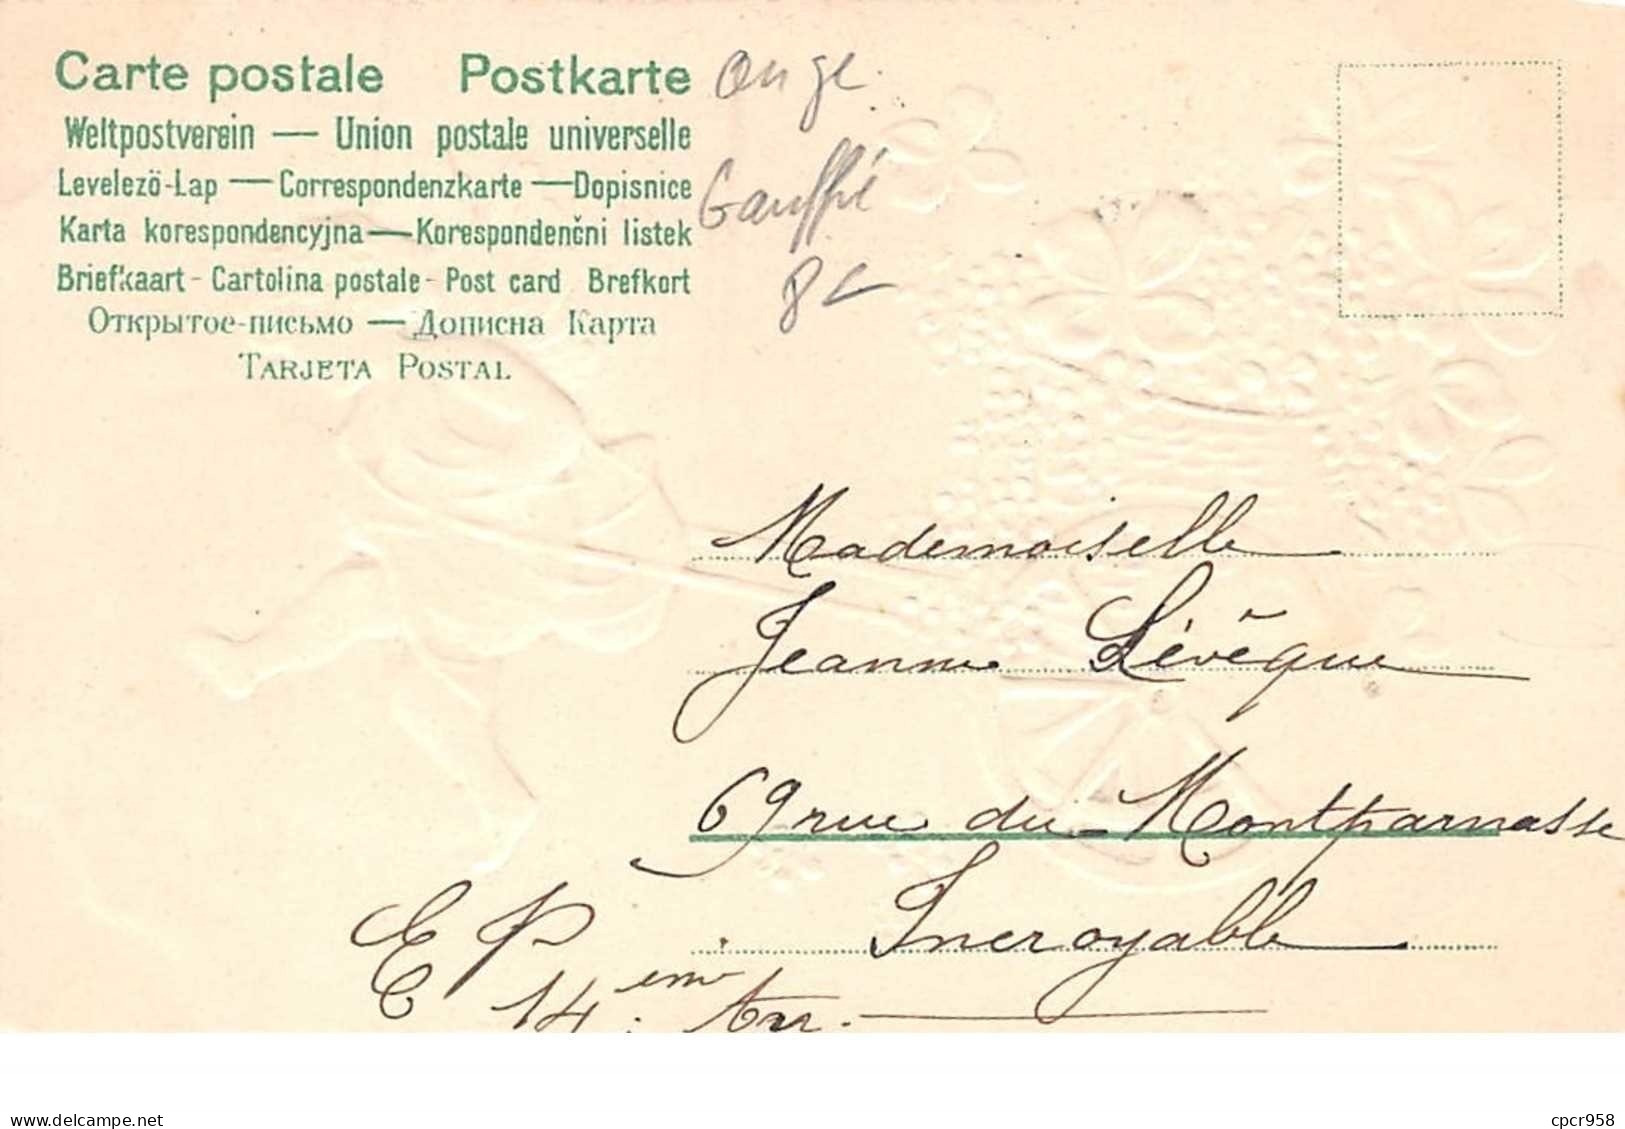 Carte postale Postkarte
Weltpostverein — Union postale universelle
Levelező-Lap — Correspondenzkarte — Dopisnice
Karta korespondencyjna — Korespondenčni listek
Briefkaart - Cartolina postale - Post card Brefkort
Открытое-письмо — Дописна Карта
TARJETA POSTAL
ange
Gauffré
8€
Mademoiselle
Jeanne Lévêque
69 rue du Montparnasse
Incroyable
E P.
14eme
delcampe.net
cpcr958